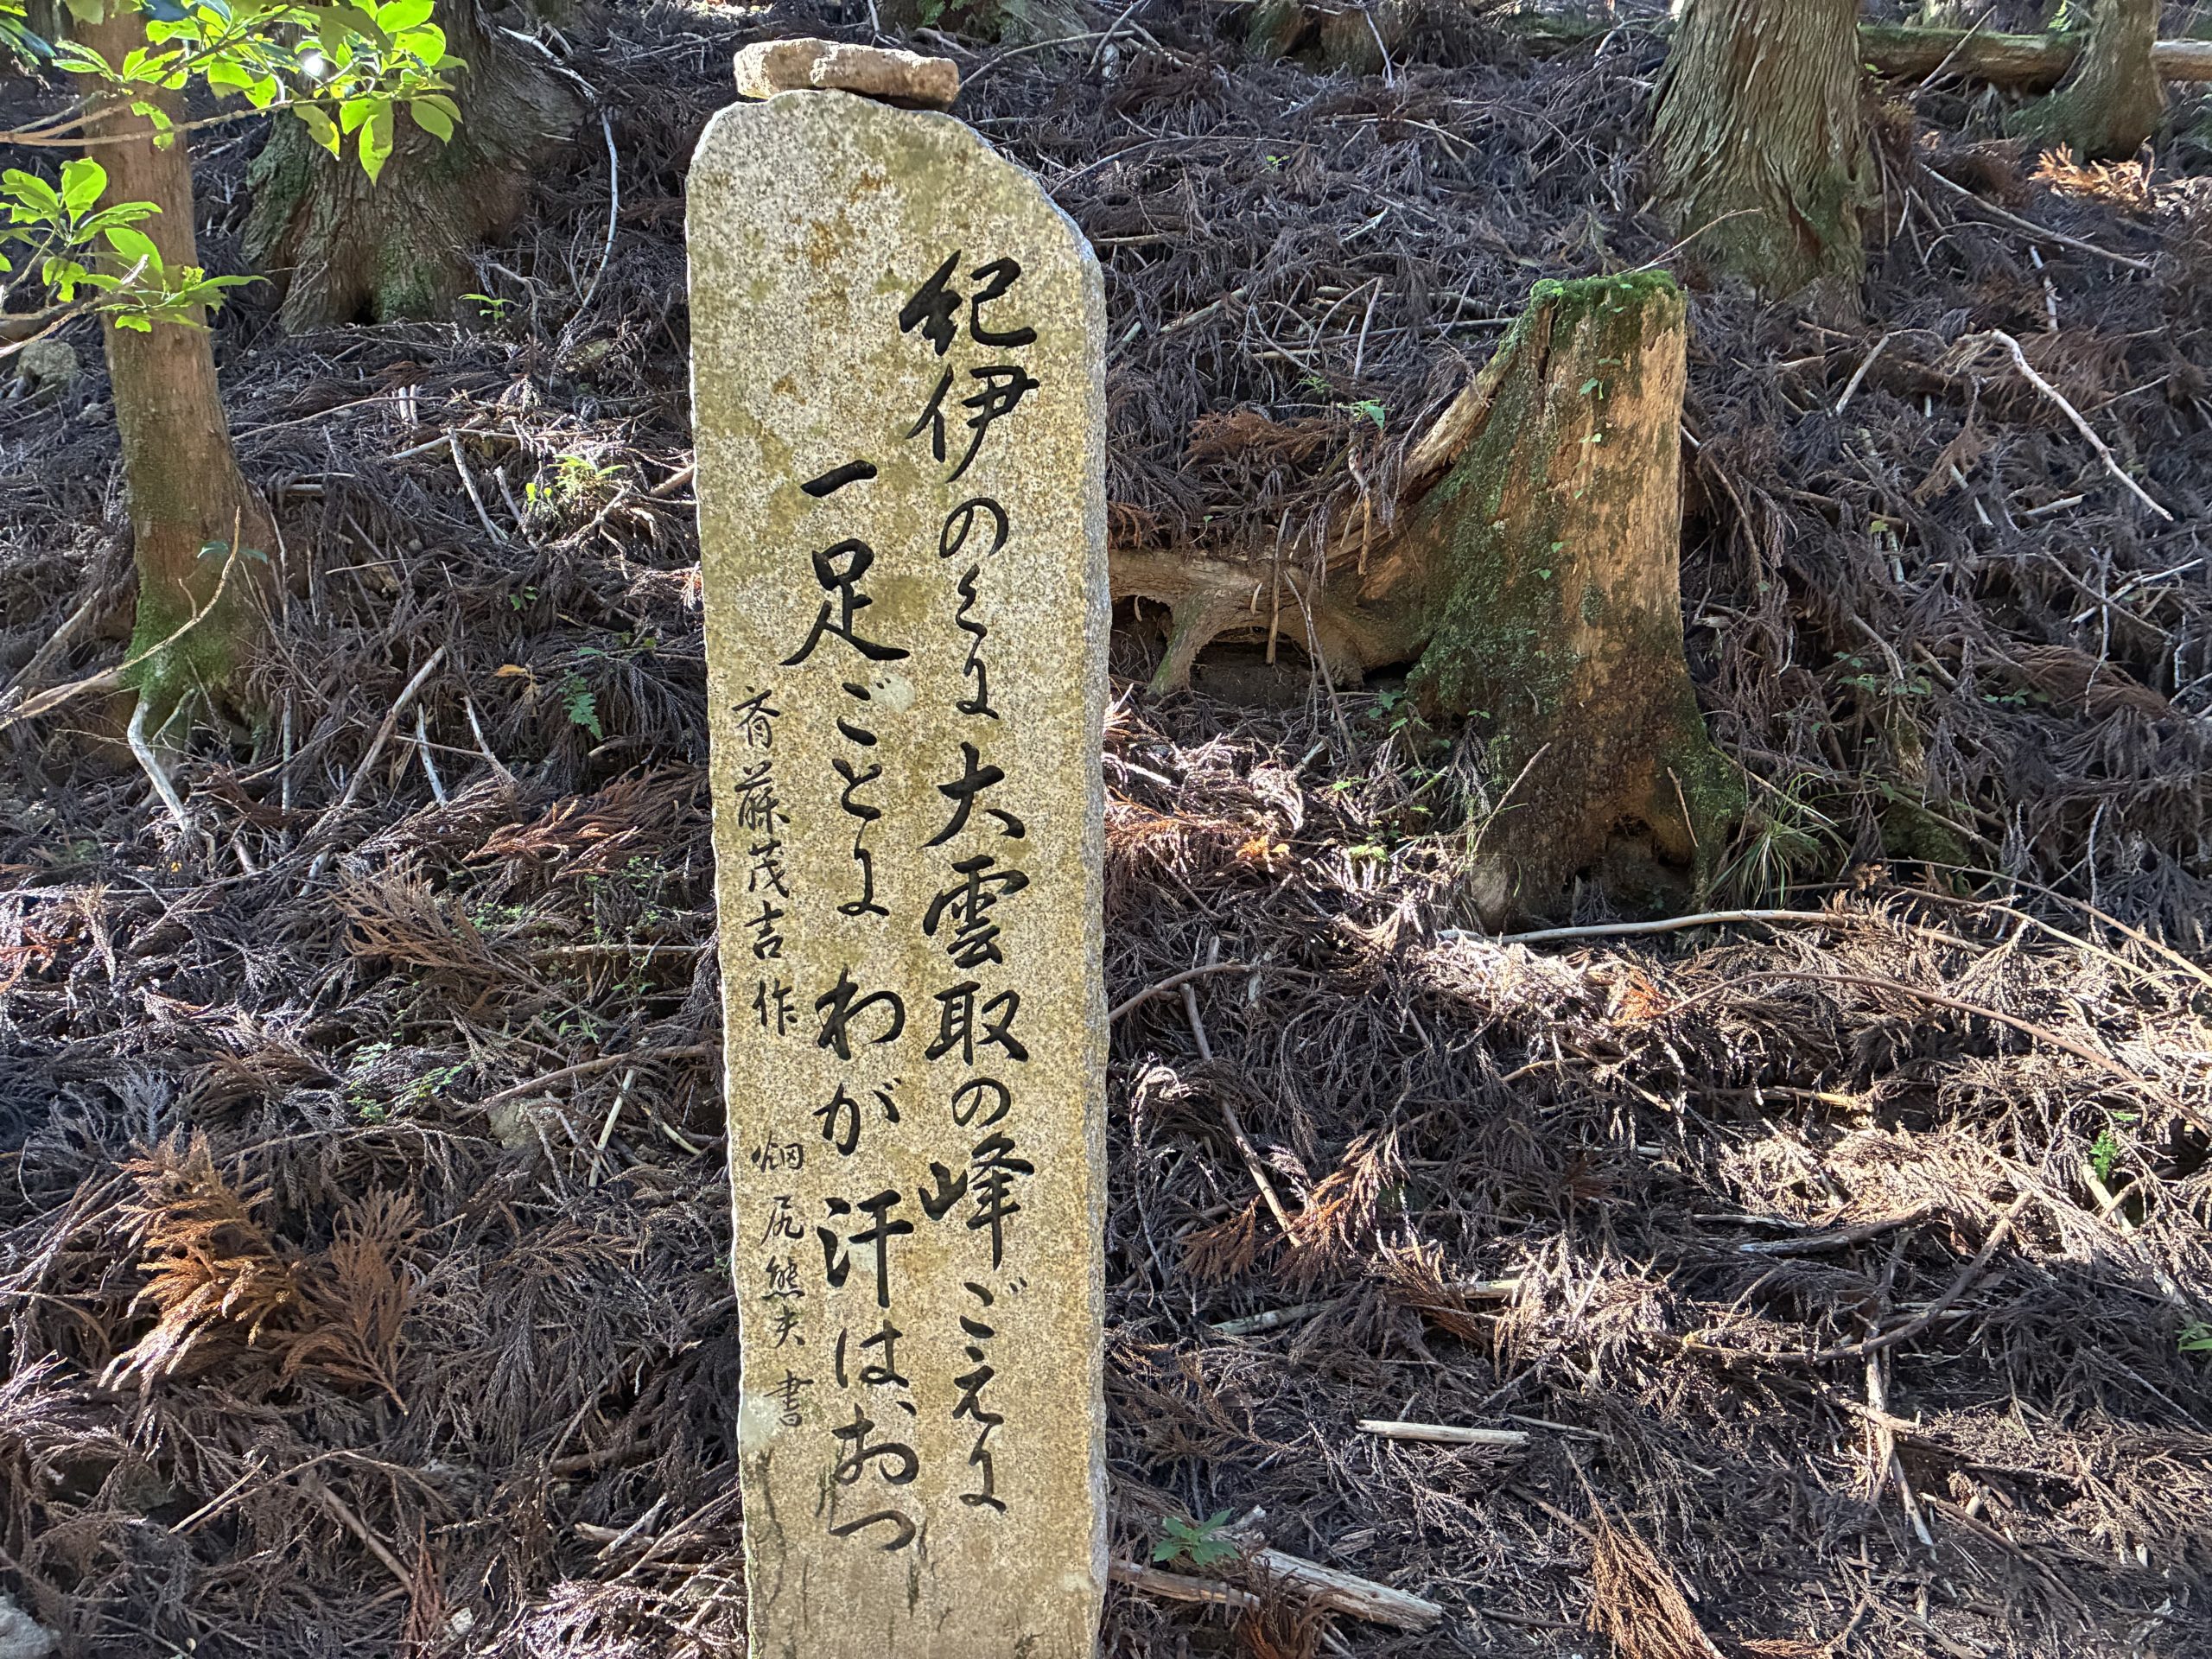 紀伊のくに大雲取の峰ごえに
一足ごとにわが汗はおつ
斎藤茂吉作 畑尻熊夫書